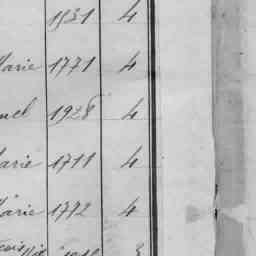 1531 4
Marie 1771 4
1928 4
Marie 1711 4
Marie 1772 4
3